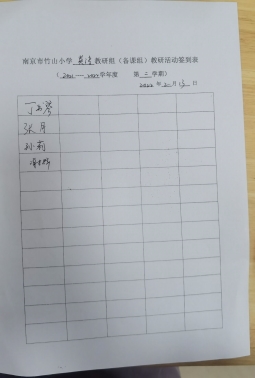 南京市竹山小学 英语 教研组（备课组）教研活动签到表
（ 2021 — 2022 学年度 第 二 学期）
2022 年 2 月 15 日
张月
孙莉